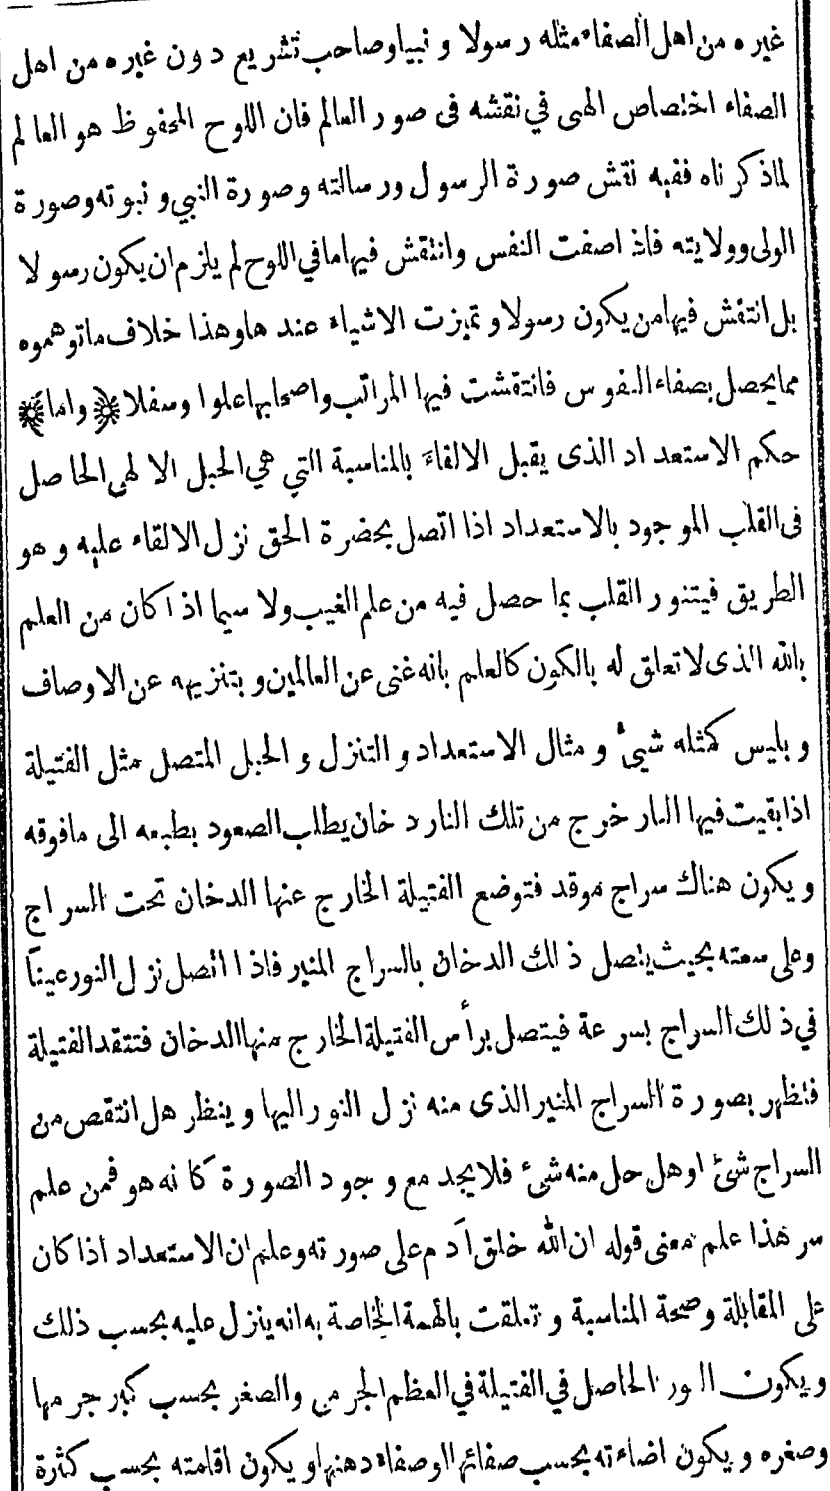 غيره من اهل الصفاء مثله رسولا و نبيا وصاحب تشريع دون غيره من اهل
الصفاء اختصاص الهى في نقشه فى صور العالم فان اللوح المحفوظ هو العالم
لماذكرناه ففيه نقش صورة الرسول ورسالته وصورة النبي ونبوته وصورة
الولى وولايته فاذا صفت النفس وانتقش فيها مافي اللوح لم يلزم ان يكون رسولا
بل انتقش فيها من يكون رسولا و تميزت الاشياء عندها وهذا خلاف ماتوهموه
مما يحصل بصفاء النفوس فانتقشت فيها المراتب واصحابها علوا وسفلا ﴿ واما ﴾
حكم الاستعداد الذى يقبل الالقاء بالمناسبة التي هي الحبل الالهى الحاصل
فى القلب الموجود بالاستعداد اذا اتصل بحضرة الحق نزل الالقاء عليه وهو
الطريق فيتنور القلب بما حصل فيه من علم الغيب ولا سيما اذا كان من العلم
بالله الذى لا تعلق له بالكون كالعلم بانه غنى عن العالمين و بتنزيهه عن الاوصاف
و بليس كمثله شيئ و مثال الاستعداد و التنزل و الحبل المتصل مثل الفتيلة
اذا بقيت فيها النار خرج من تلك النار دخان يطلب الصعود بطبعه الى مافوقه
ويكون هناك سراج موقد فتوضع الفتيلة الخارج عنها الدخان تحت السراج
وعلى سمته بحيث يتصل ذلك الدخان بالسراج المنير فاذا اتصل نزل النور عيناً
في ذلك السراج بسرعة فيتصل برأس الفتيلة الخارج منها الدخان فتتقد الفتيلة
فتظهر بصورة السراج المنير الذى منه نزل النور اليها و ينظر هل انتقص من
السراج شئ اوهل حل منه شئ فلا يجد مع وجود الصورة كانه هو فمن علم
سر هذا علم معنى قوله ان الله خلق آدم على صورته وعلم ان الاستعداد اذا كان
على المقابلة وصحة المناسبة و تعلقت بالهمة الخاصة به انه ينزل عليه بحسب ذلك
ويكون النور الحاصل في الفتيلة في العظم الجرمى والصغر بحسب كبر جرمها
وصغره ويكون اضاءته بحسب صفائها وصفاء دهنها و يكون اقامته بحسب كثرة